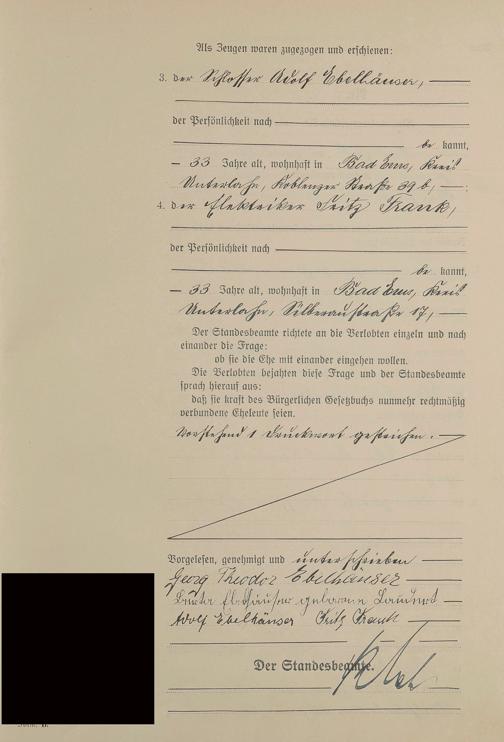 Als Zeugen waren zugezogen und erschienen:
3. der Schlosser Adolf Ebelhäuser,
der Persönlichkeit nach
be kannt,
33 Jahre alt, wohnhaft in Bad Ems, Kreis
Unterlahn, Koblenzer Straße 39 b, ;
4. der Elektriker Fritz Frank,
der Persönlichkeit nach
be kannt,
33 Jahre alt, wohnhaft in Bad Ems, Kreis
Unterlahn, Silberaustraße 17,
Der Standesbeamte richtete an die Verlobten einzeln und nach
einander die Frage:
ob sie die Ehe mit einander eingehen wollen.
Die Verlobten bejahten diese Frage und der Standesbeamte
sprach hierauf aus:
daß sie kraft des Bürgerlichen Gesetzbuchs nunmehr rechtmäßig
verbundene Eheleute seien.
Vorstehend 1 Druckwort gestrichen.
Vorgelesen, genehmigt und unterschrieben
Georg Theodor Ebelhäuser
Ebelhäuser geborene
Adolf Ebelhäuser Fritz Frank
Der Standesbeamte.